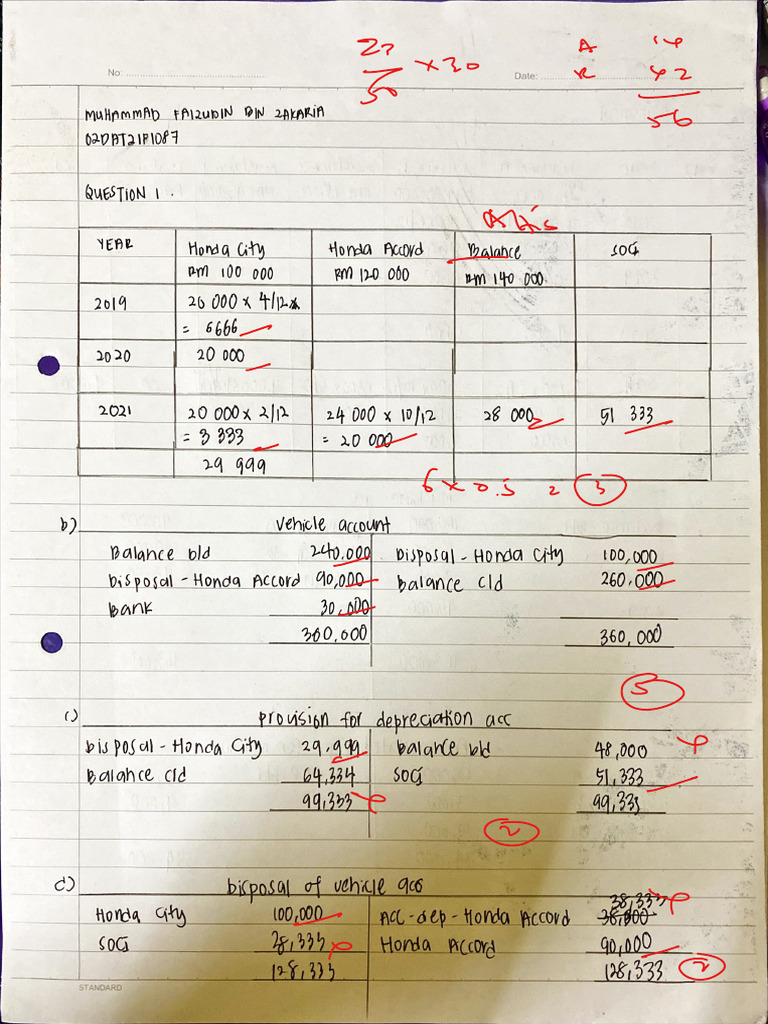 27
50 × 30
A 14
R 42
56
No:
Date:
MUHAMMAD FAIZUDIN BIN ZAKARIA
02DAT21F1087
QUESTION 1.
YEAR Honda City Honda Accord Balance SOCI
RM 100 000 RM 120 000 RM 140 000
2019 20 000 × 4/12
= 6666
2020 20 000
2021 20 000 × 2/12 24 000 × 10/12 28 000 51 333
= 3 333 = 20 000
29 999
6 × 0.5 = 3
b) Vehicle account
Balance b/d 240.000 Disposal - Honda City 100,000
Disposal - Honda Accord 90,000 Balance c/d 260,000
Bank 30,000
360,000 360,000
5
c) Provision for depreciation acc
Disposal - Honda City 29.999 Balance b/d 48,000
Balance c/d 64,334 SOCI 51,333
99,333 99,333
2
d) Disposal of vehicle acc
38,333
Honda City 100,000 Acc-dep-Honda Accord
SOCI 28,333 Honda Accord 90,000
128,333 128,333 2
STANDARD